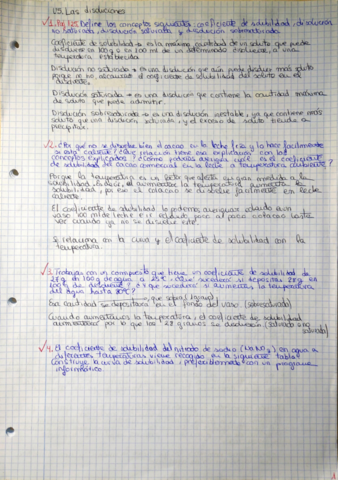 1.5. Las disoluciones
1. Pag 125 Define los conceptos siguientes: coeficiente de solubilidad, disolución
no saturada, disolución saturada y disolución sobresaturada.
Coeficiente de solubilidad → es la máxima cantidad de un soluto que puede
disolverse en 100 g o en 100 ml de un determinado disolvente, a una
temperatura establecida.
Disolución no saturada → es una disolución que aún puede disolver más soluto
porque no ha alcanzado el coeficiente de solubilidad del soluto en el
disolvente.
Disolución saturada → es una disolución que contiene la cantidad máxima
de soluto que puede admitir.
Disolución sobresaturada → es una disolución inestable, ya que contiene más
soluto que una disolución saturada, y el exceso de soluto tiende a
precipitar.
2. ¿Por qué no se disuelve bien el cacao en la leche fría y lo hace fácilmente
si está caliente? ¿Qué relación tiene esa explicación con los
conceptos explicados? ¿Cómo podrías averiguar cuál es el coeficiente
de solubilidad del cacao comercial en la leche a temperatura ambiente?
Porque la temperatura es un factor que afecta en gran medida a la
solubilidad, es decir, al aumentar la temperatura aumenta la
solubilidad, por eso el colacao se disuelve fácilmente en leche
caliente.
El coeficiente de solubilidad lo podemos averiguar echando a un
vaso 100 ml de leche e ir echando poco a poco colacao hasta
ver cuando ya no se disuelve
Se relaciona en la curva y el coeficiente de solubilidad con la
temperatura.
3. Trabajas con un compuesto que tiene un coeficiente de solubilidad de
en 100 g de agua a 25°C. ¿Qué sucederá si depositas
en 100 g de ¿Y qué sucederá si aumentas la temperatura
del agua hasta
Esa cantidad se depositará en el fondo del vaso (sobresaturada)
Cuando aumentamos la temperatura, el coeficiente de solubilidad
aumentará por lo que los gramos se disolverán (saturada
4. El coeficiente de solubilidad del nitrato de sodio (NaNO₃) en agua a
diferentes temperaturas viene recogido en la siguiente tabla.
Construye la curva de solubilidad, preferiblemente con un programa
informático.
1